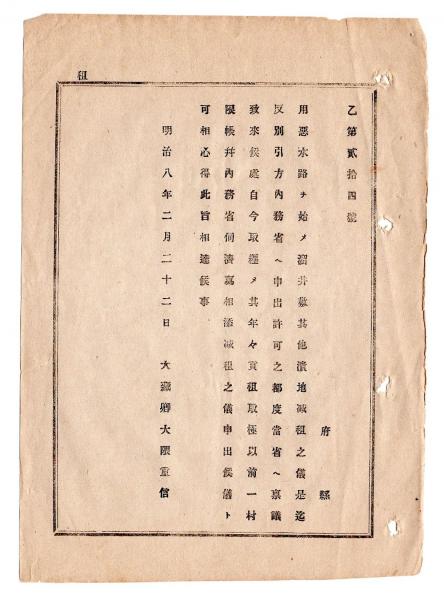 租
乙第貳拾四號
府縣
用惡水路ヲ始メ溜井敷其他潰地减租之儀是迄
反別引方內務省ヘ申出許可之都度當省ヘ稟議
致來候處自今取纒メ其年々貢租取極以前一村
限帳幷內務省伺濟寫相添减租之儀申出候儀ト
可相心得此旨相達候事
明治八年二月二十二日　大藏卿大隈重信